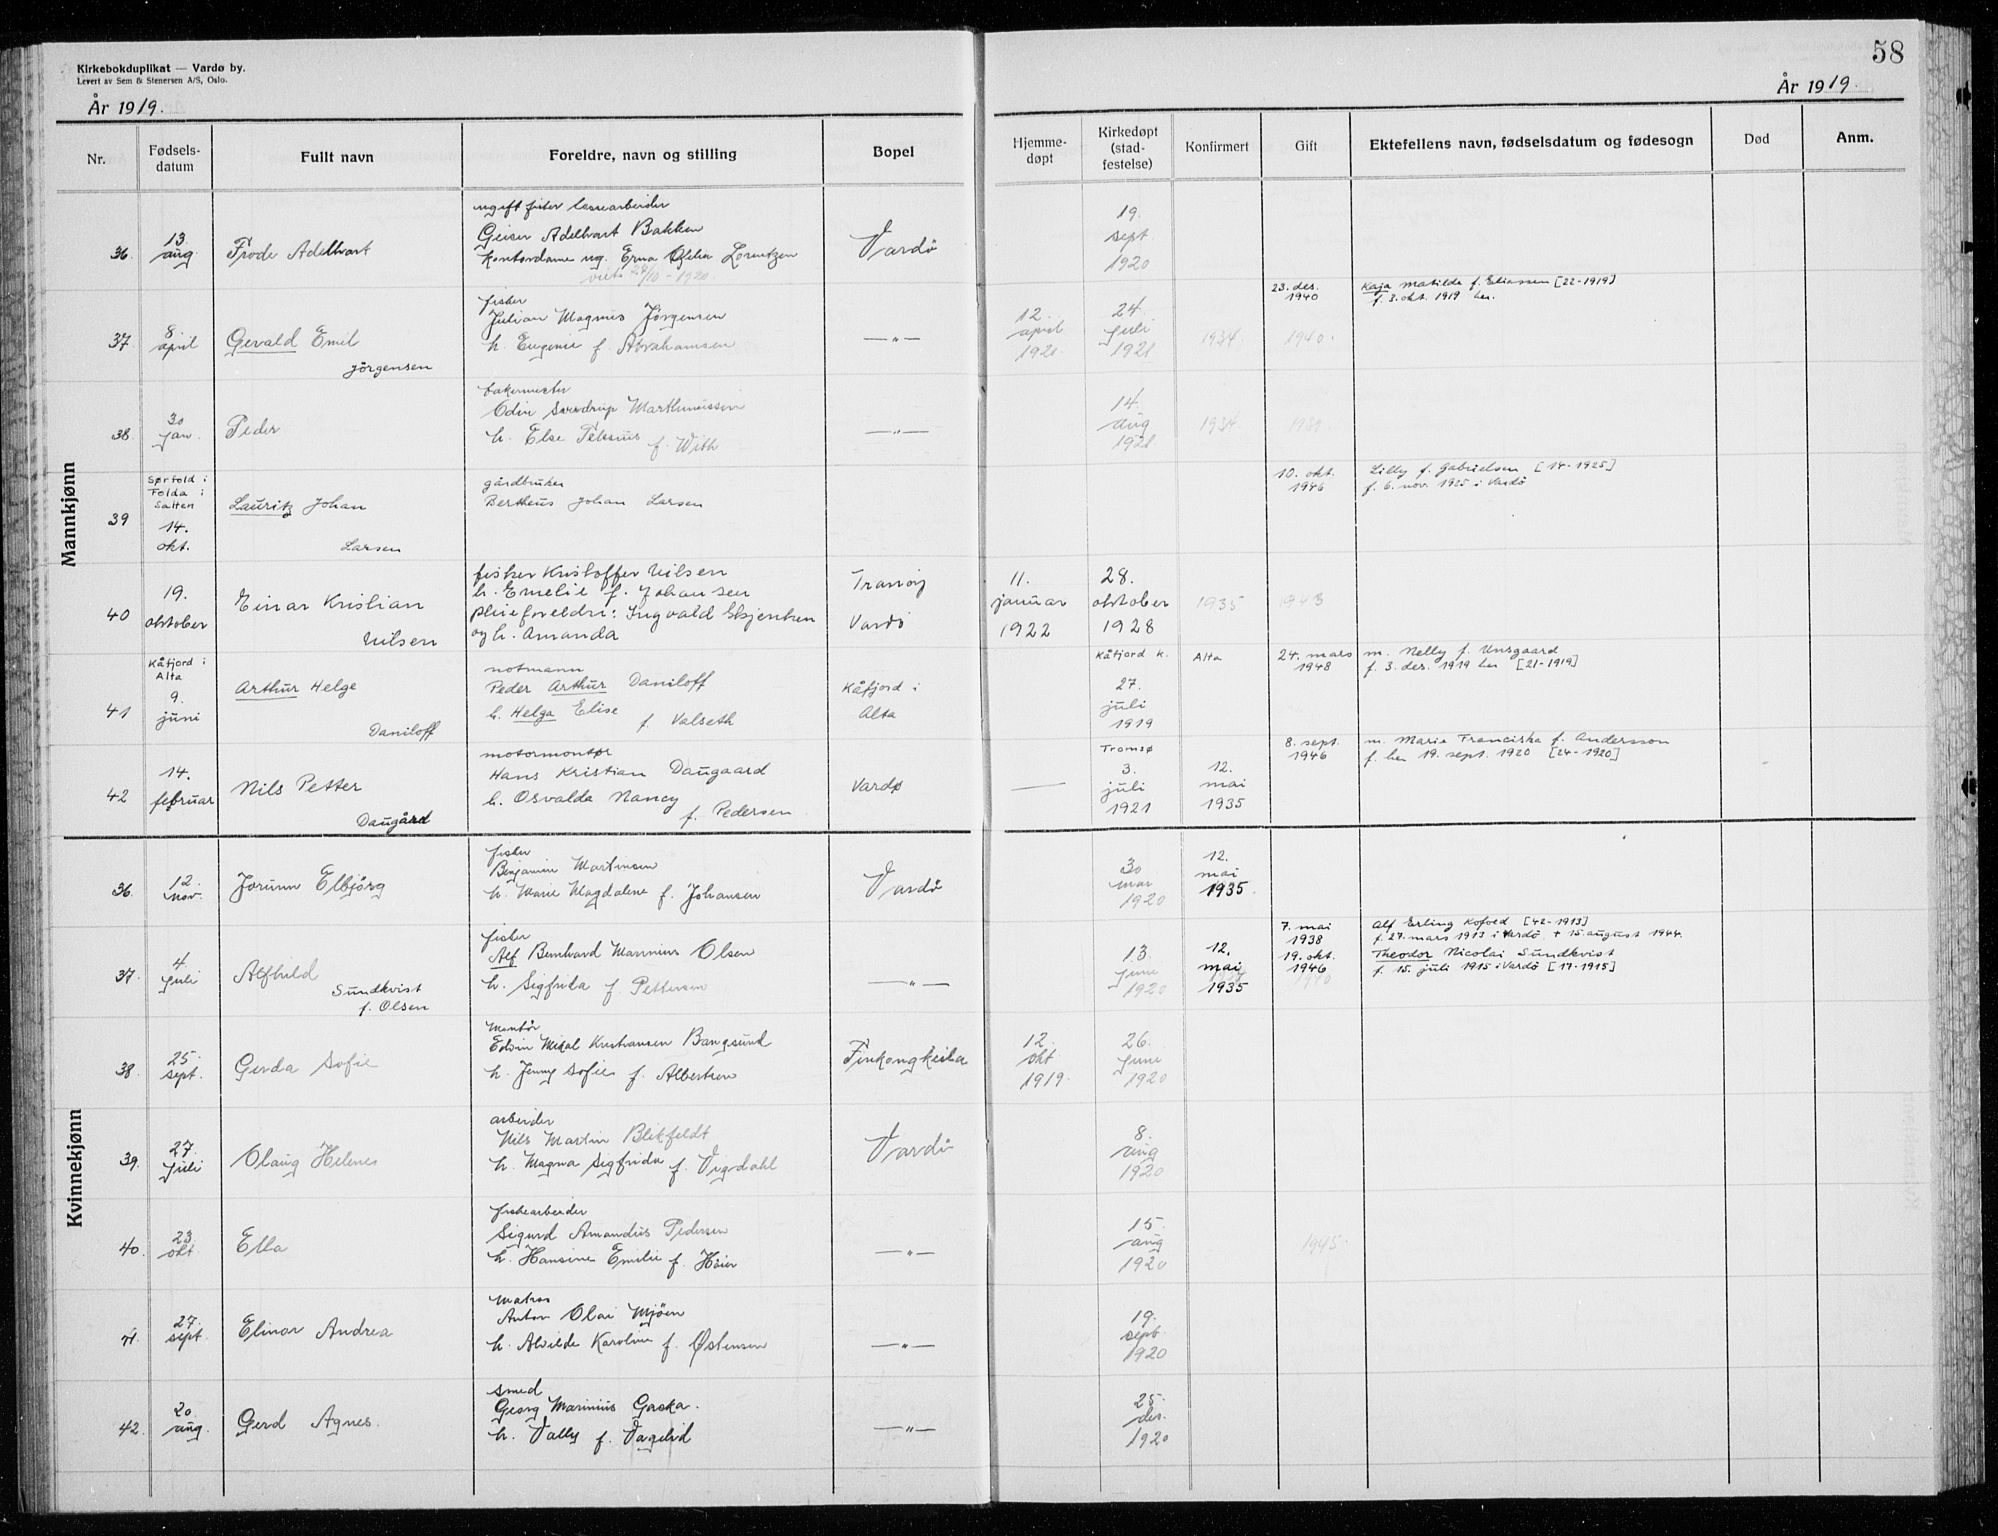 Kirkebokduplikat — Vardø by.
Levert av Sem & Stenersen A/S, Oslo.
58
År 1919.
År 1919.
Nr.
Fødsels-
datum
Fullt navn
Foreldre, navn og stilling
Bopel
Hjemme-
døpt
Kirkedøpt
(stad-
festelse)
Konfirmert
Gift
Ektefellens navn, fødselsdatum og fødesogn
Død
Anm.
Mannkjønn
36.
13.
aug.
Frode Adelhart
ugift fisker lossearbeider
Geiser Adelhart Bakken
kontordame ug. Erna Ofelia Lorentzen
28/10 - 1920.
Vardö
19.
sept.
1920
37.
8.
april
Gevald Emil
Jörgensen
fisker
Julian Magnus Jörgensen
h. Eugenie f. Abrahamsen
— „ —
12.
april
1920.
24.
juli
1921
1934
23. des.
1940
1940.
Kaja Matilde f. Eliassen [22-1919]
f. 3. okt. 1919 her.
38
30
jan.
Peder
bakermester
Odin Marthinussen
h. Else Petrine f. With
— „ —
14.
aug
1921.
1934
39
Sørfold i
Folda i
Salten
14.
okt.
Lauritz Johan
Larsen
gårdbruker
Bertheus Johan Larsen
10. okt.
1946
Lilly f. Gabrielsen [14-1925]
f. 6. nov. 1925 i Vardö
40
19.
oktober
Einar Kristian
Nilsen
fisker Kristoffer Nilsen
h. Emelie f. Johansen
pleieforeldre: Ingvald Skjenken
og h. Amanda
Tranöy
Vardö
11.
januar
1922
28.
oktober
1928
1935
1943
41
Kåfjord i
Alta
9.
juni
Arthur Helge
Daniloff
notmann
Peder Arthur Daniloff
h. Helga Elise
f. Valseth
Kåfjord i
Alta
Kåfjord k.
27.
juli
1919
Alta
24. mars
1948
m. Nelly f. Unsgaard
f. 3. des. 1919 her [21-1919]
42
14.
februar
Nils Petter
Daugård
motormontør
Hans Kristian Daugaard
h. Osvalda Nancy
f. Pedersen
Vardø
—
Tromsø
3.
juli
1921
12.
mai
1935
8. sept.
1946
m. Marie Franciska f. Andersson
f. her 19. sept. 1920 [24-1920]
Kvinnekjønn
36.
12.
nov.
Jorunn Elbjörg
fisker
Benjamin Martinsen
h. Marie Magdalene f. Johansen
Vardö
30
mar
1920
12.
mai
1935
37.
4.
juli
Alfhild
Sundkvist
f. Olsen
fisker
Alf Bernhard Marinius Olsen
h. Sigfrida f. Pettersen
— „ —
13.
juni
1920
12.
mai
1935
7. mai
1938
19. okt.
1946
Alf Erling Kofoed [42-1913]
f. 27. mars 1913 i Vardö. + 15. august 1944.
Theodor Nicolai Sundkvist
f. 15. juli 1915 i Vardö [17-1915]
38.
25.
sept.
Gerda Sofie
Montör
Edvin Mikal Kristiansen Bangsund
h. Jenny Sofie f. Albertsen
Finkongkeila
12.
okt
1919.
26.
juni
1920
39.
27.
juli
Olaug Helene
arbeider
Nils Martin Blikfeldt
h. Magna Sigfrida f. Vigdahl
Vardö
8.
aug
1920
40.
23.
okt
Ella
fiskearbeider
Sigurd Amandus Pedersen
h. Hansine Emilie f. Höier
— „ —
15.
aug
1920
1945.
41.
27.
sept.
Elinor Andrea
Matros
Anton Olai Mjöen
h. Alvilde Karoline f. Østensen
— „ —
19.
sept.
1920
42.
20.
aug.
Gerd Agnes.
smed
Georg Marinius Gaska.
h. Vally f. Vagelid
— „ —
25.
des.
1920